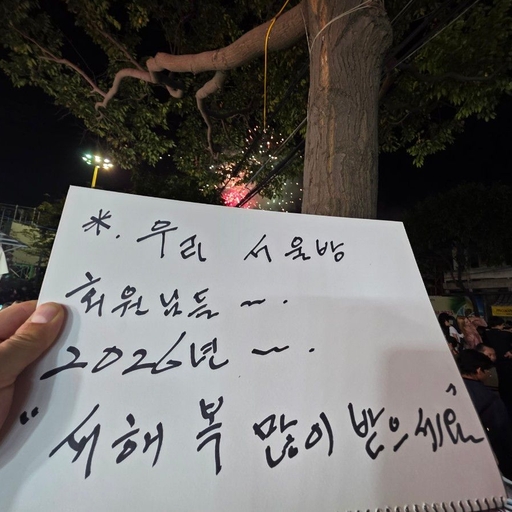 *. 우리 서울방
회원님들 ~.
2026년 ~.
"새해 복 많이 받으세요